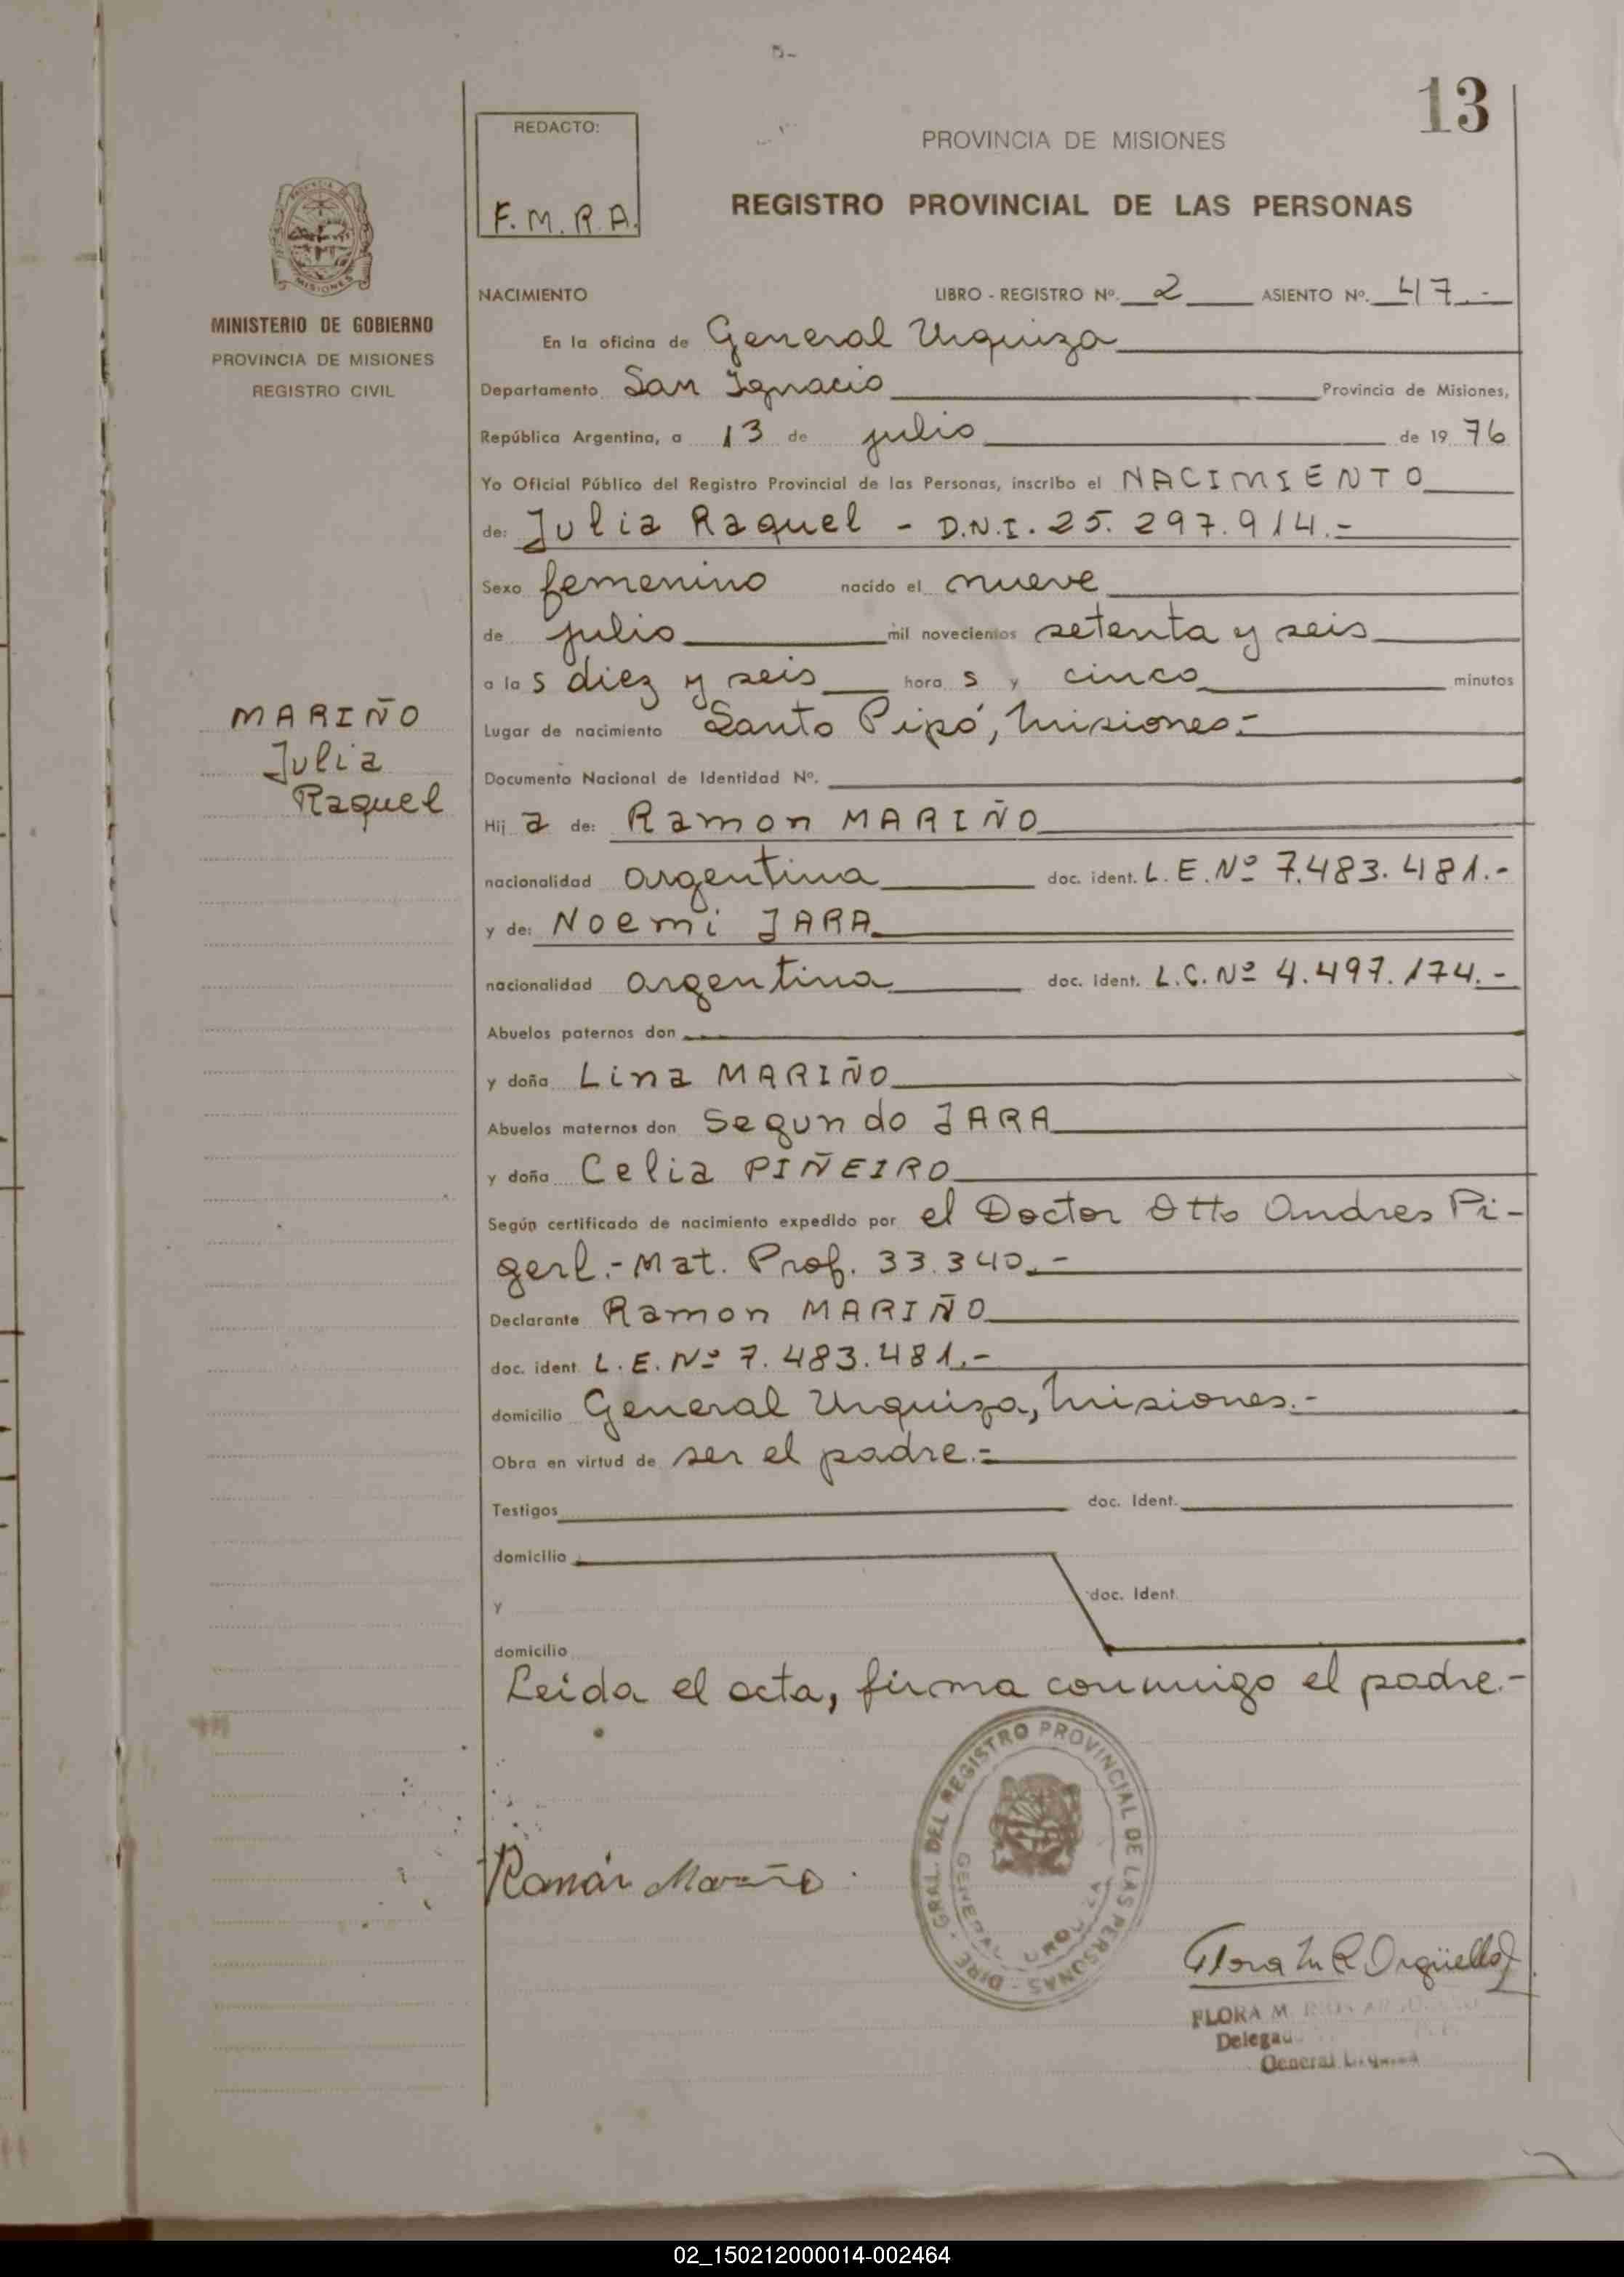 13
REDACTO:
F. M. R. A.
PROVINCIA DE MISIONES
REGISTRO PROVINCIAL DE LAS PERSONAS
MISIONES
MINISTERIO DE GOBIERNO
PROVINCIA DE MISIONES
REGISTRO CIVIL
NACIMIENTO LIBRO - REGISTRO Nº. 2 ASIENTO Nº. 47.-
En la oficina de General Urquiza
Departamento San Ignacio Provincia de Misiones,
República Argentina, a 13 de julio de 19 76
Yo Oficial Público del Registro Provincial de las Personas, inscribo el NACIMIENTO
de: Julia Raquel - D.N.I. 25.297.914.-
Sexo femenino nacido el nueve
de julio mil novecientos setenta y seis
a las diez y seis horas y cinco minutos
MARIÑO
Julia
Raquel
Lugar de nacimiento Santo Pipó, Misiones.-
Documento Nacional de Identidad Nº.
Hija de: Ramon MARIÑO
nacionalidad argentina doc. ident. L. E. Nº 7.483.481.-
y de: Noemi JARA
nacionalidad argentina doc. ident. L.C. Nº 4.497.174.-
Abuelos paternos don
y doña Lina MARIÑO
Abuelos maternos don Segundo JARA
y doña Celia PIÑEIRO
Según certificado de nacimiento expedido por el Doctor Otto Andres Pi-
gerl.- Mat. Prof. 33.340.-
Declarante Ramon MARIÑO
doc. ident. L. E. Nº 7.483.481.-
domicilio General Urquiza, Misiones.-
Obra en virtud de ser el padre.-
Testigos doc. Ident.
domicilio
y doc. Ident.
domicilio
Leida el acta, firma conmigo el padre.-
DIRE. GRAL. DEL REGISTRO PROVINCIAL DE LAS PERSONAS
GENERAL URQUIZA
Ramón Mariño
Flora M R Argüello
FLORA M.
General
02_150212000014-002464